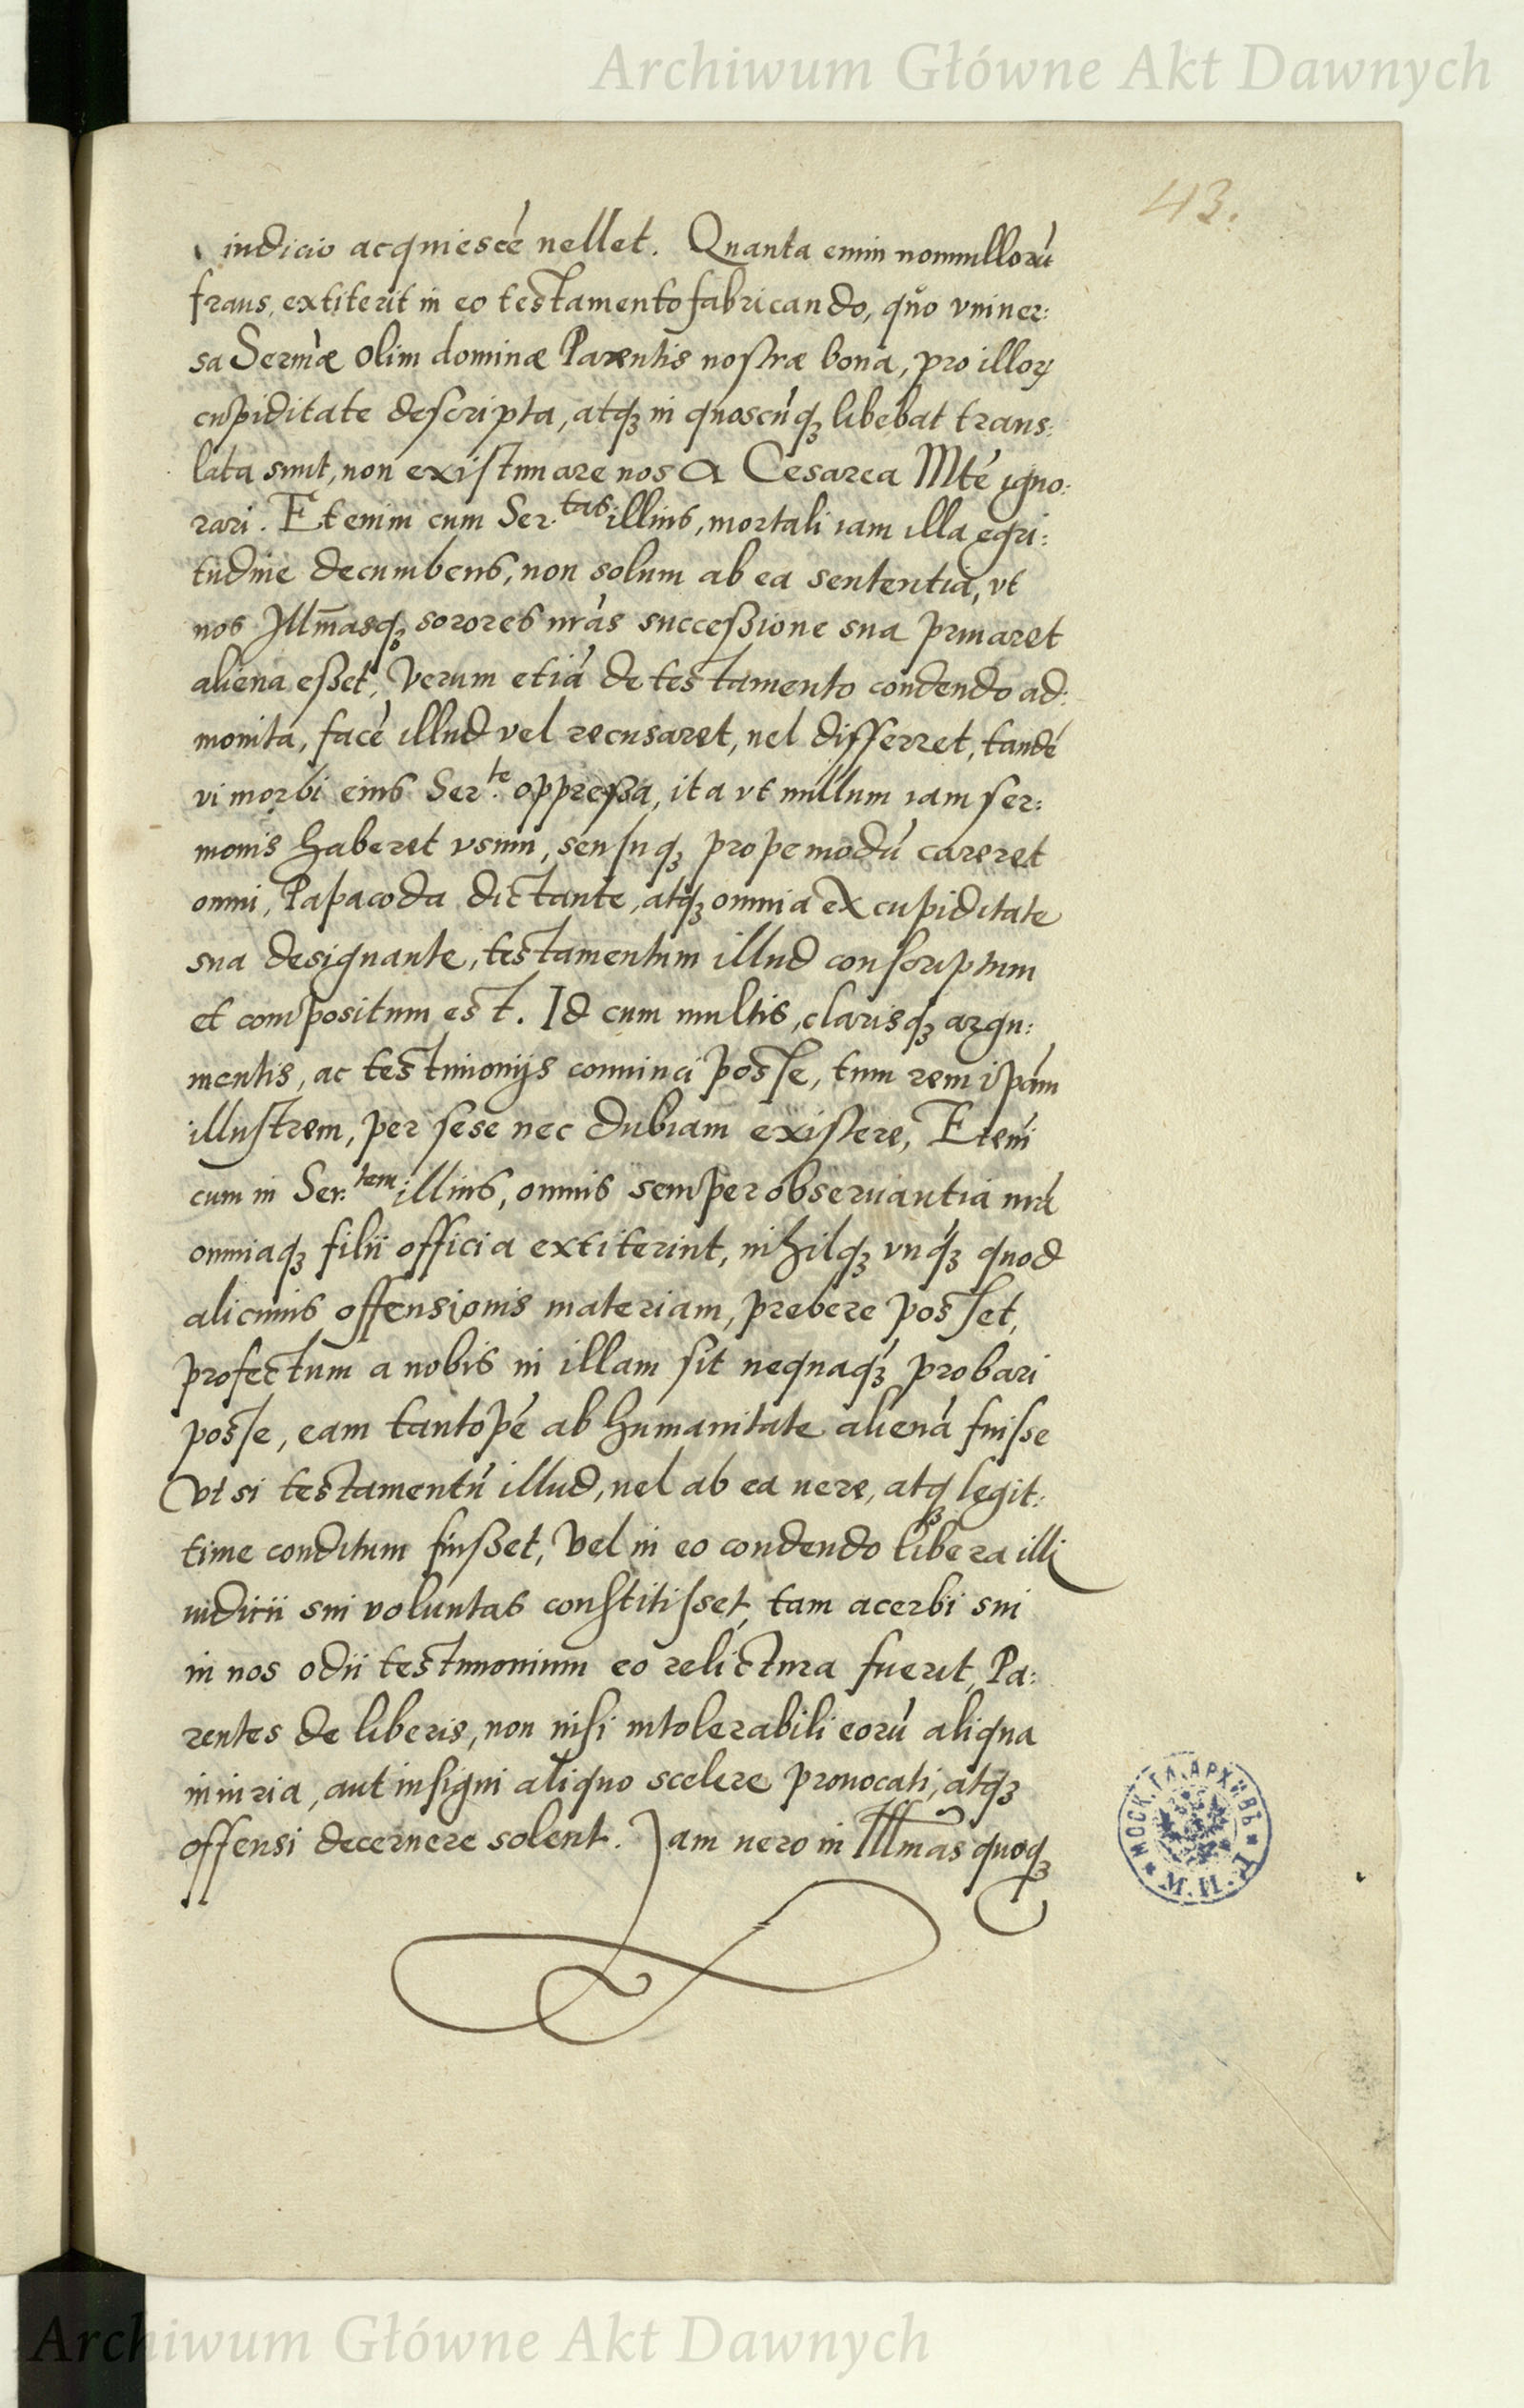 Archiwum Główne Akt Dawnych
43.
iudicio acquiescẽ vellet. Quanta enim nonnullorũ
fraus, extiterit in eo testamento fabricando, quo vniuer:
sa Sermæ olim dominæ Parentis nostræ bona, pro illoꝝ
cupiditate descripta, atqꝫ in quoscũqꝫ libebat trans:
lata sunt, non existimare nos a Cesarea Mte igno:
rari. Etenim cum Ser.tas illius, mortali iam illa egri:
tudine decumbens, non solum ab ea sententia, vt
nos Illmasqꝫ sorores nras successione sua priuaret
aliena esset, Verum etiã de testamento condendo ad:
monita, facẽ illud vel recusaret, uel differret, tandẽ
vi morbi eius Ser.te oppressa, ita vt nullum iam ser:
monis haberet vsum, sensuqꝫ propemodũ careret
omni, Papacoda dictante, atqꝫ omnia ex cupiditate
sua designante, testamentum illud conscriptum
et compositum est. Id cum multis, clarisqꝫ argu:
mentis, ac testimonijs conuinci posse, tum rem ipãm
illustrem, per sese nec dubiam existere, Etenĩ
cum in Ser.tem illius, omnis semper obseruantia nrã
omniaqꝫ filii officia extiterint, nihilqꝫ vnqꝫ quod
alicuius offensionis materiam, prebere posset,
profectum a nobis in illam sit nequaqꝫ probari
posse, eam tantopẽ ab humanitate alienã fuisse
Vt si testamentũ illud, uel ab ea uere, atqꝫ legit:
time conditum fuisset, Vel in eo condendo libera illi
iudicii sui voluntas constitisset, tam acerbi sui
in nos odii testimonium eo relictura fuerit, Pa:
rentes de liberis, non nisi intolerabili eorũ aliqua
iniuria, aut insigni aliquo scelere prouocati, atqꝫ
offensi decernere solent. Iam uero in Illmas quoqꝫ
МОСК. ГЛ. АРХИВЪ
М. И. Д.
Archiwum Główne Akt Dawnych